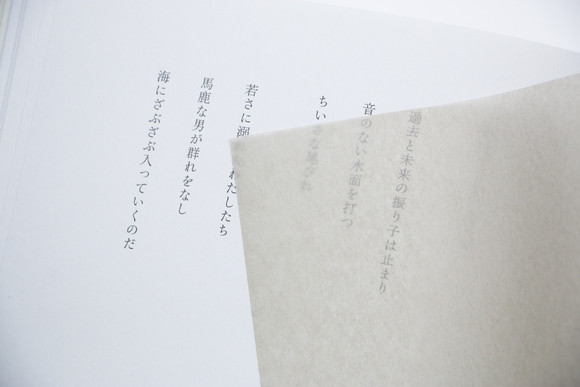 過去と未来の振り子は止まり
音のない水面を打つ
ちいさな尾びれ
若さに溺 わたしたち
馬鹿な男が群れをなし
海にざぶざぶ入っていくのだ